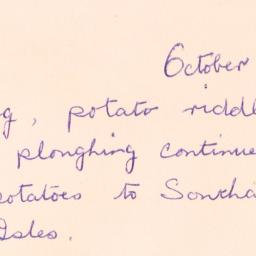 October
g, potato riddl
ploughing continue
potatoes to Southa
Isles.